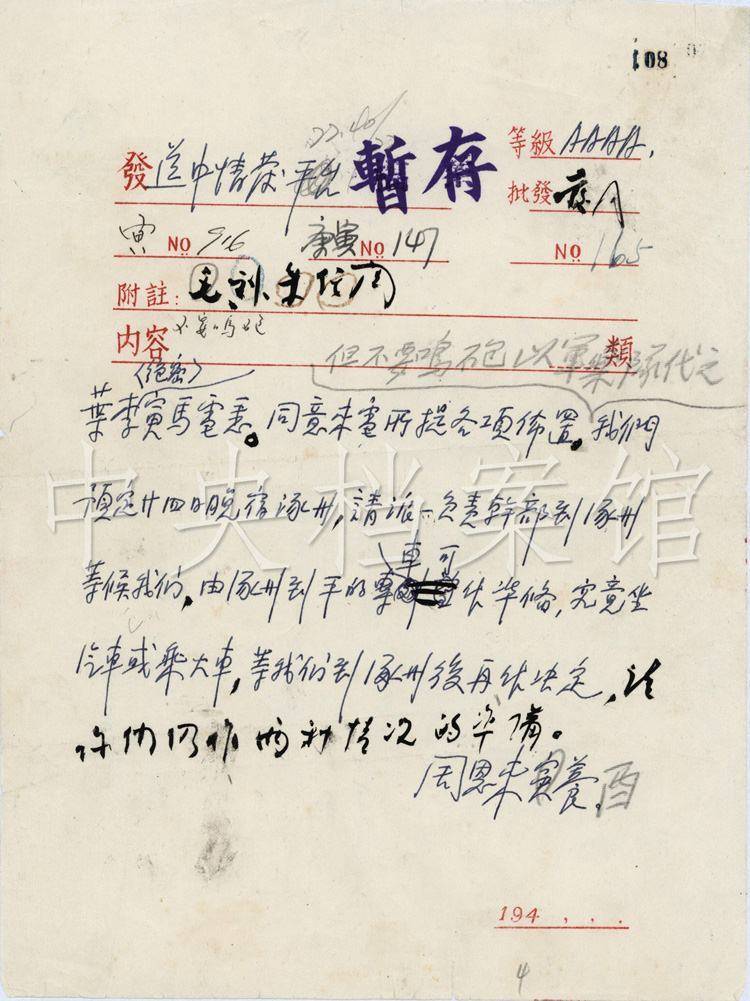 108
22.40/
暫存
等級 AAAA.
發 送中情發平
批發
寅 NO 976 庚寅 NO 147 NO 165
附註: 毛 朱任周
内容 不要鳴砲 類
但不要鳴砲以軍樂隊代之
(絕密)
葉李寅馬電悉。同意來電所提各項佈置,我們
預定廿四日晚宿涿州,請派一負責幹部到涿州
等候我們,由涿州到平的專車可作準備,究竟坐
汽車或乘火車,等我們到涿州後再作決定,請
你們仍作兩種情况的準備。
周恩來寅養.酉
194 . . .
4
中央档案馆